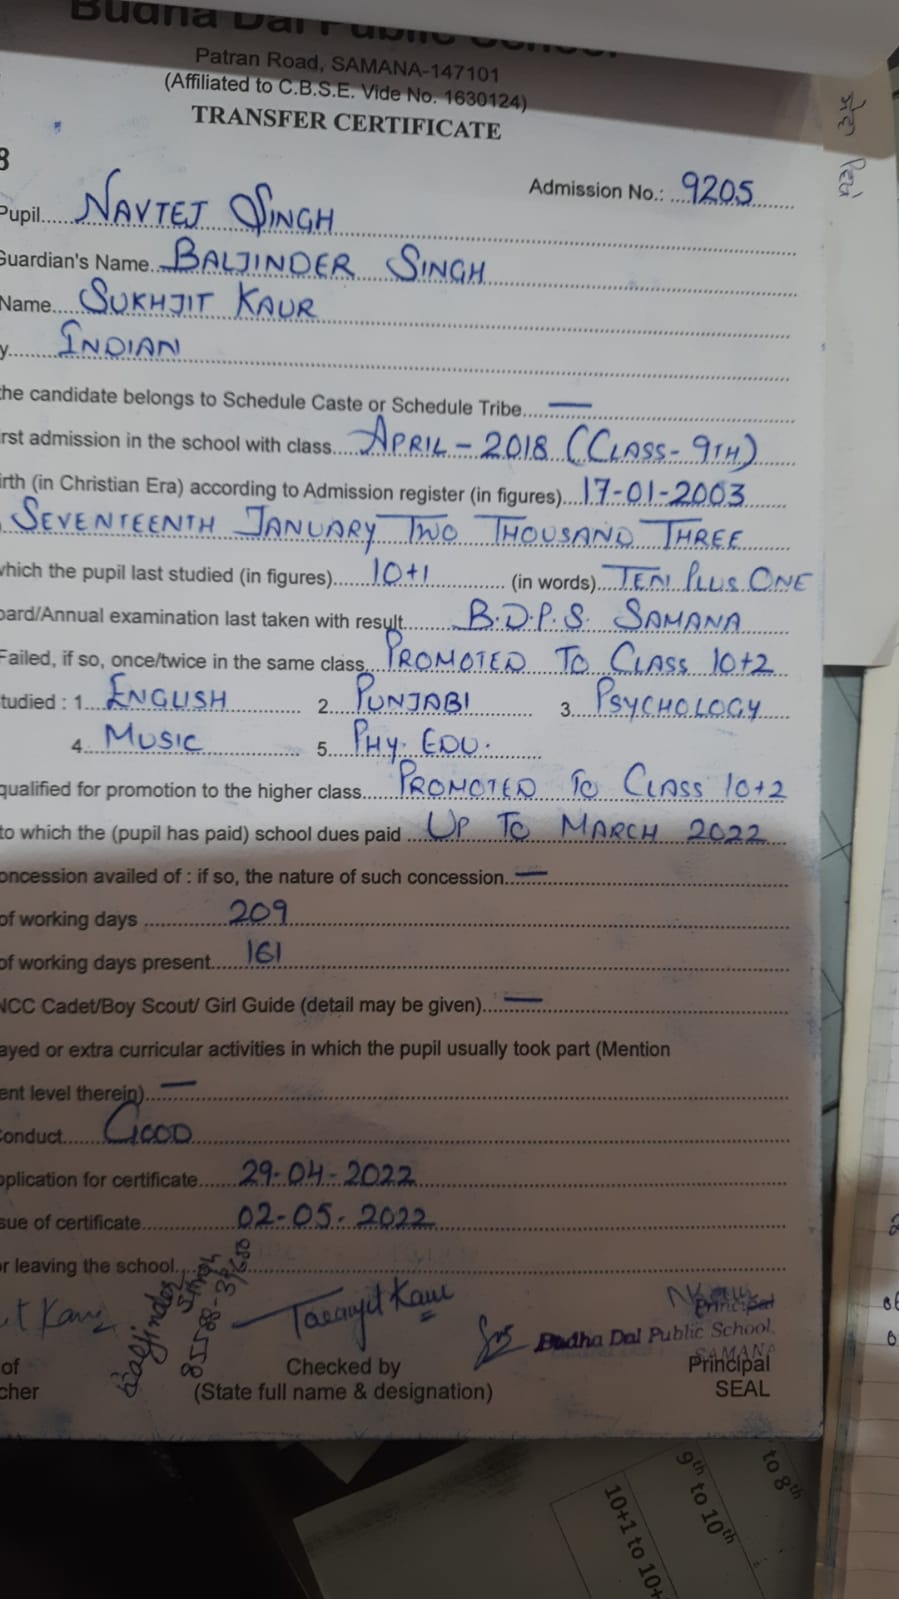 Budha Dal Public School
Patran Road, SAMANA-147101
(Affiliated to C.B.S.E. Vide No. 1630124)
TRANSFER CERTIFICATE
Admission No.: 9205
Pupil NAVTEJ SINGH
Guardian's Name BALJINDER SINGH
Name SUKHJIT KAUR
y INDIAN
the candidate belongs to Schedule Caste or Schedule Tribe —
irst admission in the school with class APRIL - 2018 (CLASS - 9TH)
irth (in Christian Era) according to Admission register (in figures) 17-01-2003
SEVENTEENTH JANUARY TWO THOUSAND THREE
which the pupil last studied (in figures) 10+1 (in words) TEN PLUS ONE
oard/Annual examination last taken with result B.D.P.S. SAMANA
Failed, if so, once/twice in the same class PROMOTED TO CLASS 10+2
tudied : 1 ENGLISH 2 PUNJABI 3 PSYCHOLOGY
4 MUSIC 5 PHY. EDU.
qualified for promotion to the higher class PROMOTED TO CLASS 10+2
to which the (pupil has paid) school dues paid UP TO MARCH 2022
oncession availed of : if so, the nature of such concession —
of working days 209
of working days present 161
NCC Cadet/Boy Scout/ Girl Guide (detail may be given) —
ayed or extra curricular activities in which the pupil usually took part (Mention
ent level therein) —
Conduct GOOD
pplication for certificate 29-04-2022
sue of certificate 02-05-2022
or leaving the school
Baljinder Singh
Taranjit Kaur
Principal
Budha Dal Public School,
SAMANA
of Checked by Principal
cher (State full name & designation) SEAL
to 8th
9th to 10th
10+1 to 10+